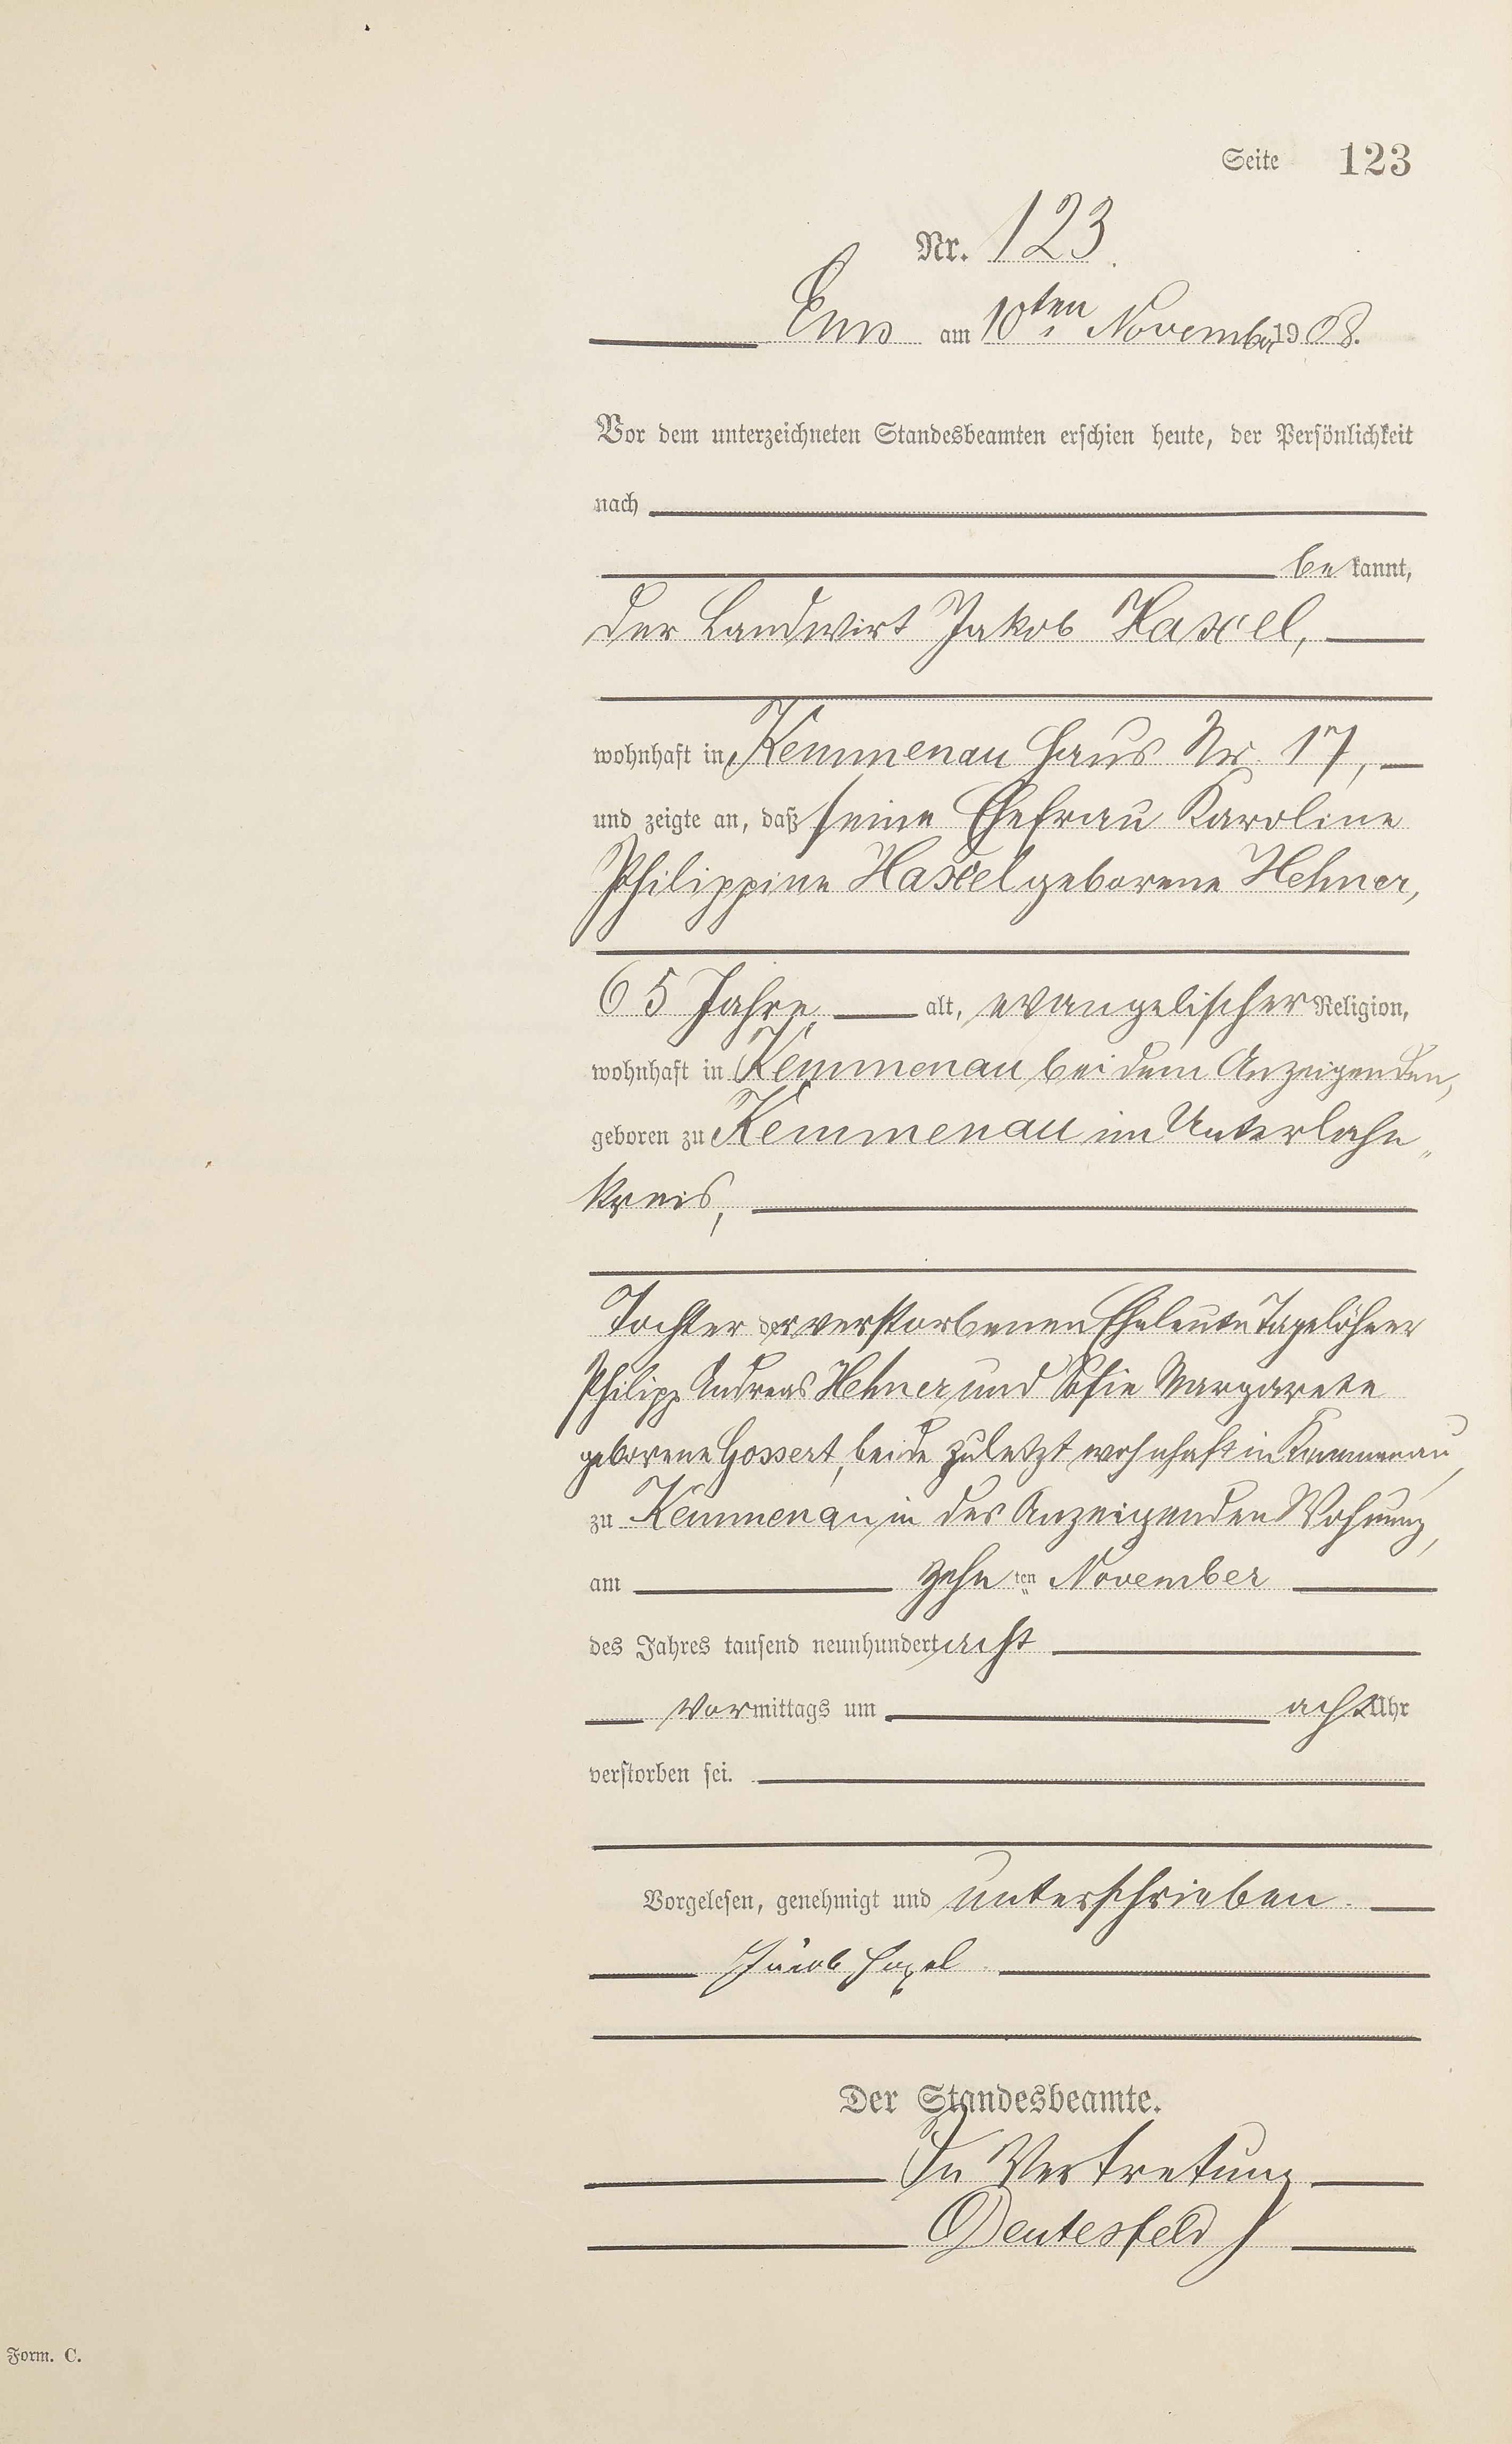 Seite 123
Nr. 123
Ems am 10ten November 1908.
Vor dem unterzeichneten Standesbeamten erschien heute, der Persönlichkeit
nach
bekannt,
der Landwirt Jakob Haxel,
wohnhaft in Kemmenau Haus Nr. 17,
und zeigte an, daß seine Ehefrau Karoline
Philippine Haxel geborene Hehner,
65 Jahre alt, evangelischer Religion,
wohnhaft in Kemmenau bei dem Anzeigenden,
geboren zu Kemmenau im Unterlahn„
kreis,
Tochter der verstorbenen Eheleute Tagelöhner
Philipp Andreas Hehner und Sofie Margarete
geborene Gossert, beide zuletzt wohnhaft in Kemmenau,
zu Kemmenau in des Anzeigenden Wohnung,
am zehnten November
des Jahres tausend neunhundert acht
Vormittags um acht Uhr
verstorben sei.
Vorgelesen, genehmigt und unterschrieben.
Jacob Haxel
Der Standesbeamte.
In Vertretung
Deutesfeld
Form. C.